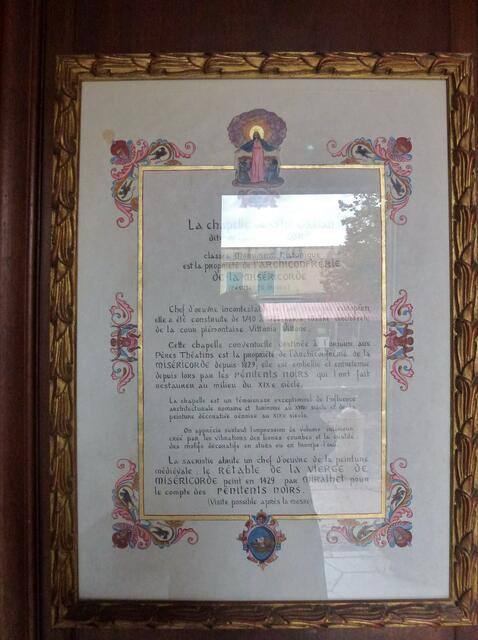 La chapelle
classée Monument Historique
est la propriété de l'ARCHICONFRÉRIE
de la MISÉRICORDE
Chef d'oeuvre incontestable
elle a été construite de 1740 à
de la cour piémontaise Vittorio Vittone.
Cette chapelle conventuelle destinée à l'origine aux
Pères Théatins est la propriété de l'Archiconfrérie de la
MISÉRICORDE depuis 1829, elle est embellie et entretenue
depuis lors par les PÉNITENTS NOIRS qui l'ont fait
restaurer au milieu du XIXe siècle.
La chapelle est un témoignage exceptionnel de l'influence
architecturale romaine et turinoise au XVIIIe siècle et de la
peinture décorative génoise au XIXe siècle.
On apprécie surtout l'impression de volume intérieur
créé par les vibrations des lignes courbes et la qualité
des motifs décoratifs en stucs ou en trompe l'oeil
La sacristie abrite un chef d'oeuvre de la peinture
médiévale: le RÉTABLE DE LA VIERGE DE
MISÉRICORDE peint en 1429 par MIRALHET pour
le compte des PÉNITENTS NOIRS.
(Visite possible après la messe)